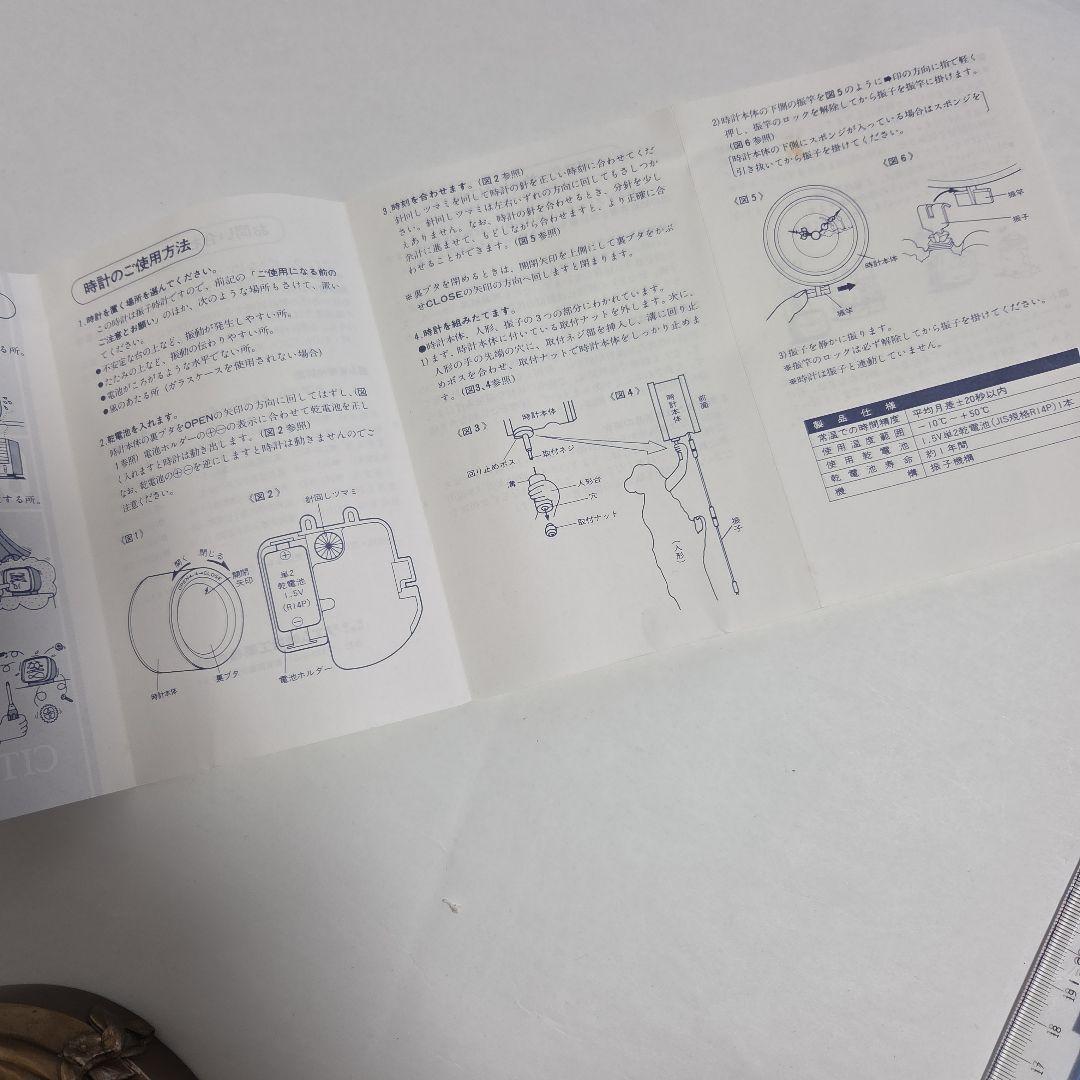 る所。
する所。
CIT
時計のご使用方法
1.時計を置く場所を選んでください。
この時計は振子時計ですので、前記の「ご使用になる前の
ご注意とお願い」のほか、次のような場所もさけて、置い
てください。
●不安定な台の上など、振動が発生しやすい所。
●たたみの上など、振動の伝わりやすい所。
●電池がころがるような水平でない所。
●風のあたる所(ガラスケースを使用されない場合)
2.乾電池を入れます。
時計本体の裏ブタをOPENの矢印の方向に回してはずし、(図
1参照)電池ホルダーの⊕⊖の表示に合わせて乾電池を正し
く入れますと時計は動き出します。(図2参照)
なお、乾電池の⊕⊖を逆にしますと時計は動きませんのでご
注意ください。
《図1》
開く
閉じる
OPEN↔CLOSE
開閉
矢印
時計本体
裏ブタ
《図2》
針回しツマミ
⊕
単2
乾電池
1.5V
(R14P)
⊖
電池ホルダー
3.時刻を合わせます。(図2参照)
針回しツマミを回して時計の針を正しい時刻に合わせてくだ
さい。針回しツマミは左右いずれの方向に回してもさしつか
えありません。なお、時計の針を合わせるとき、分針を少し
余計に進ませて、もどしながら合わせますと、より正確に合
わせることができます。(図5参照)
※裏ブタを閉めるときは、開閉矢印を上側にして裏ブタをかぶ
せCLOSEの矢印の方向へ回しますと閉まります。
4.時計を組みたてます。
●時計本体、人形、振子の3つの部分にわかれています。
1)まず、時計本体に付いている取付ナットを外します。次に、
人形の手の先端の穴に、取付ネジ部を挿入し、溝に回り止
めボスを合わせ、取付ナットで時計本体をしっかり止めま
す。(図3、4参照)
《図3》
時計本体
回り止めボス
取付ネジ
溝
人形台
穴
取付ナット
《図4》
時計本体
前面
振子
(人形)
2)時計本体の下側の振竿を図5のように➡印の方向に指で軽く
押し、振竿のロックを解除してから振子を振竿に掛けます。
(図6参照)
[時計本体の下側にスポンジが入っている場合はスポンジを
引き抜いてから振子を掛けてください。]
《図5》
時計本体
《図6》
振竿
振子
3)振子を静かに振ります。
※振竿のロックは必ず解除してから振子を掛けてください。
※時計は振子と連動していません。
製品仕様
常温での時間精度 平均月差±20秒以内
使用温度範囲 −10℃〜+50℃
使用乾電池 1.5V単2乾電池(JIS規格R14P)1本
乾電池寿命 約1年間
機構 振子機構
17
18
19